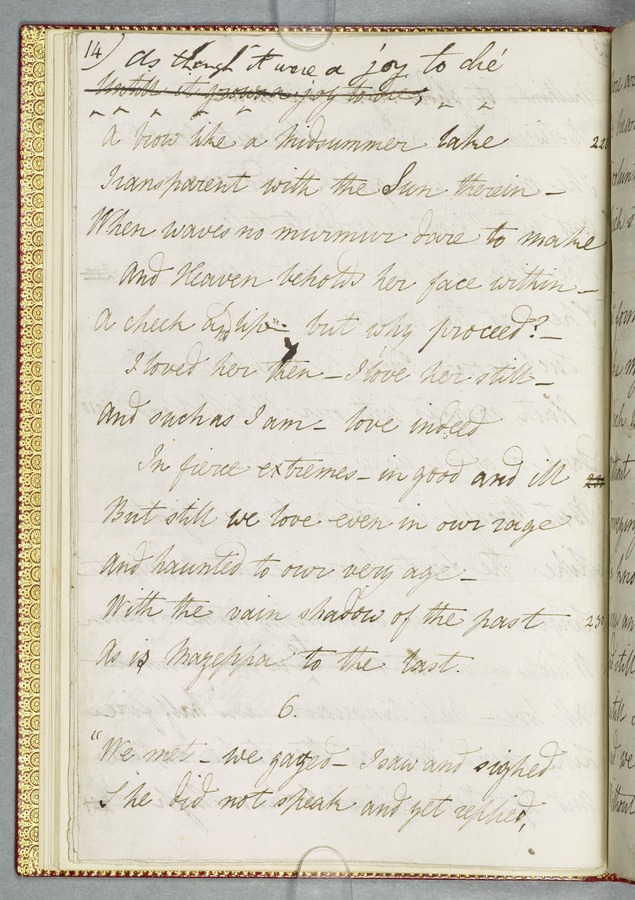 14)
As though it were a joy to die
Untill it grows a joy to die,
A brow like a Midsummer lake 22
Transparent with the Sun therein –
When waves no murmur dare to make
And Heaven beholds her face within –
A cheek and lip – but why proceed? –
I loved her then – I love her still –
And such as I am – love indeed
In fierce extremes – in good and ill
But still we love even in our rage
And haunted to our very age –
With the vain shadow of the past 230
As is Mazeppa to the last.
6.
"We met – we gazed – I saw and sighed
She did not speak and yet replied,